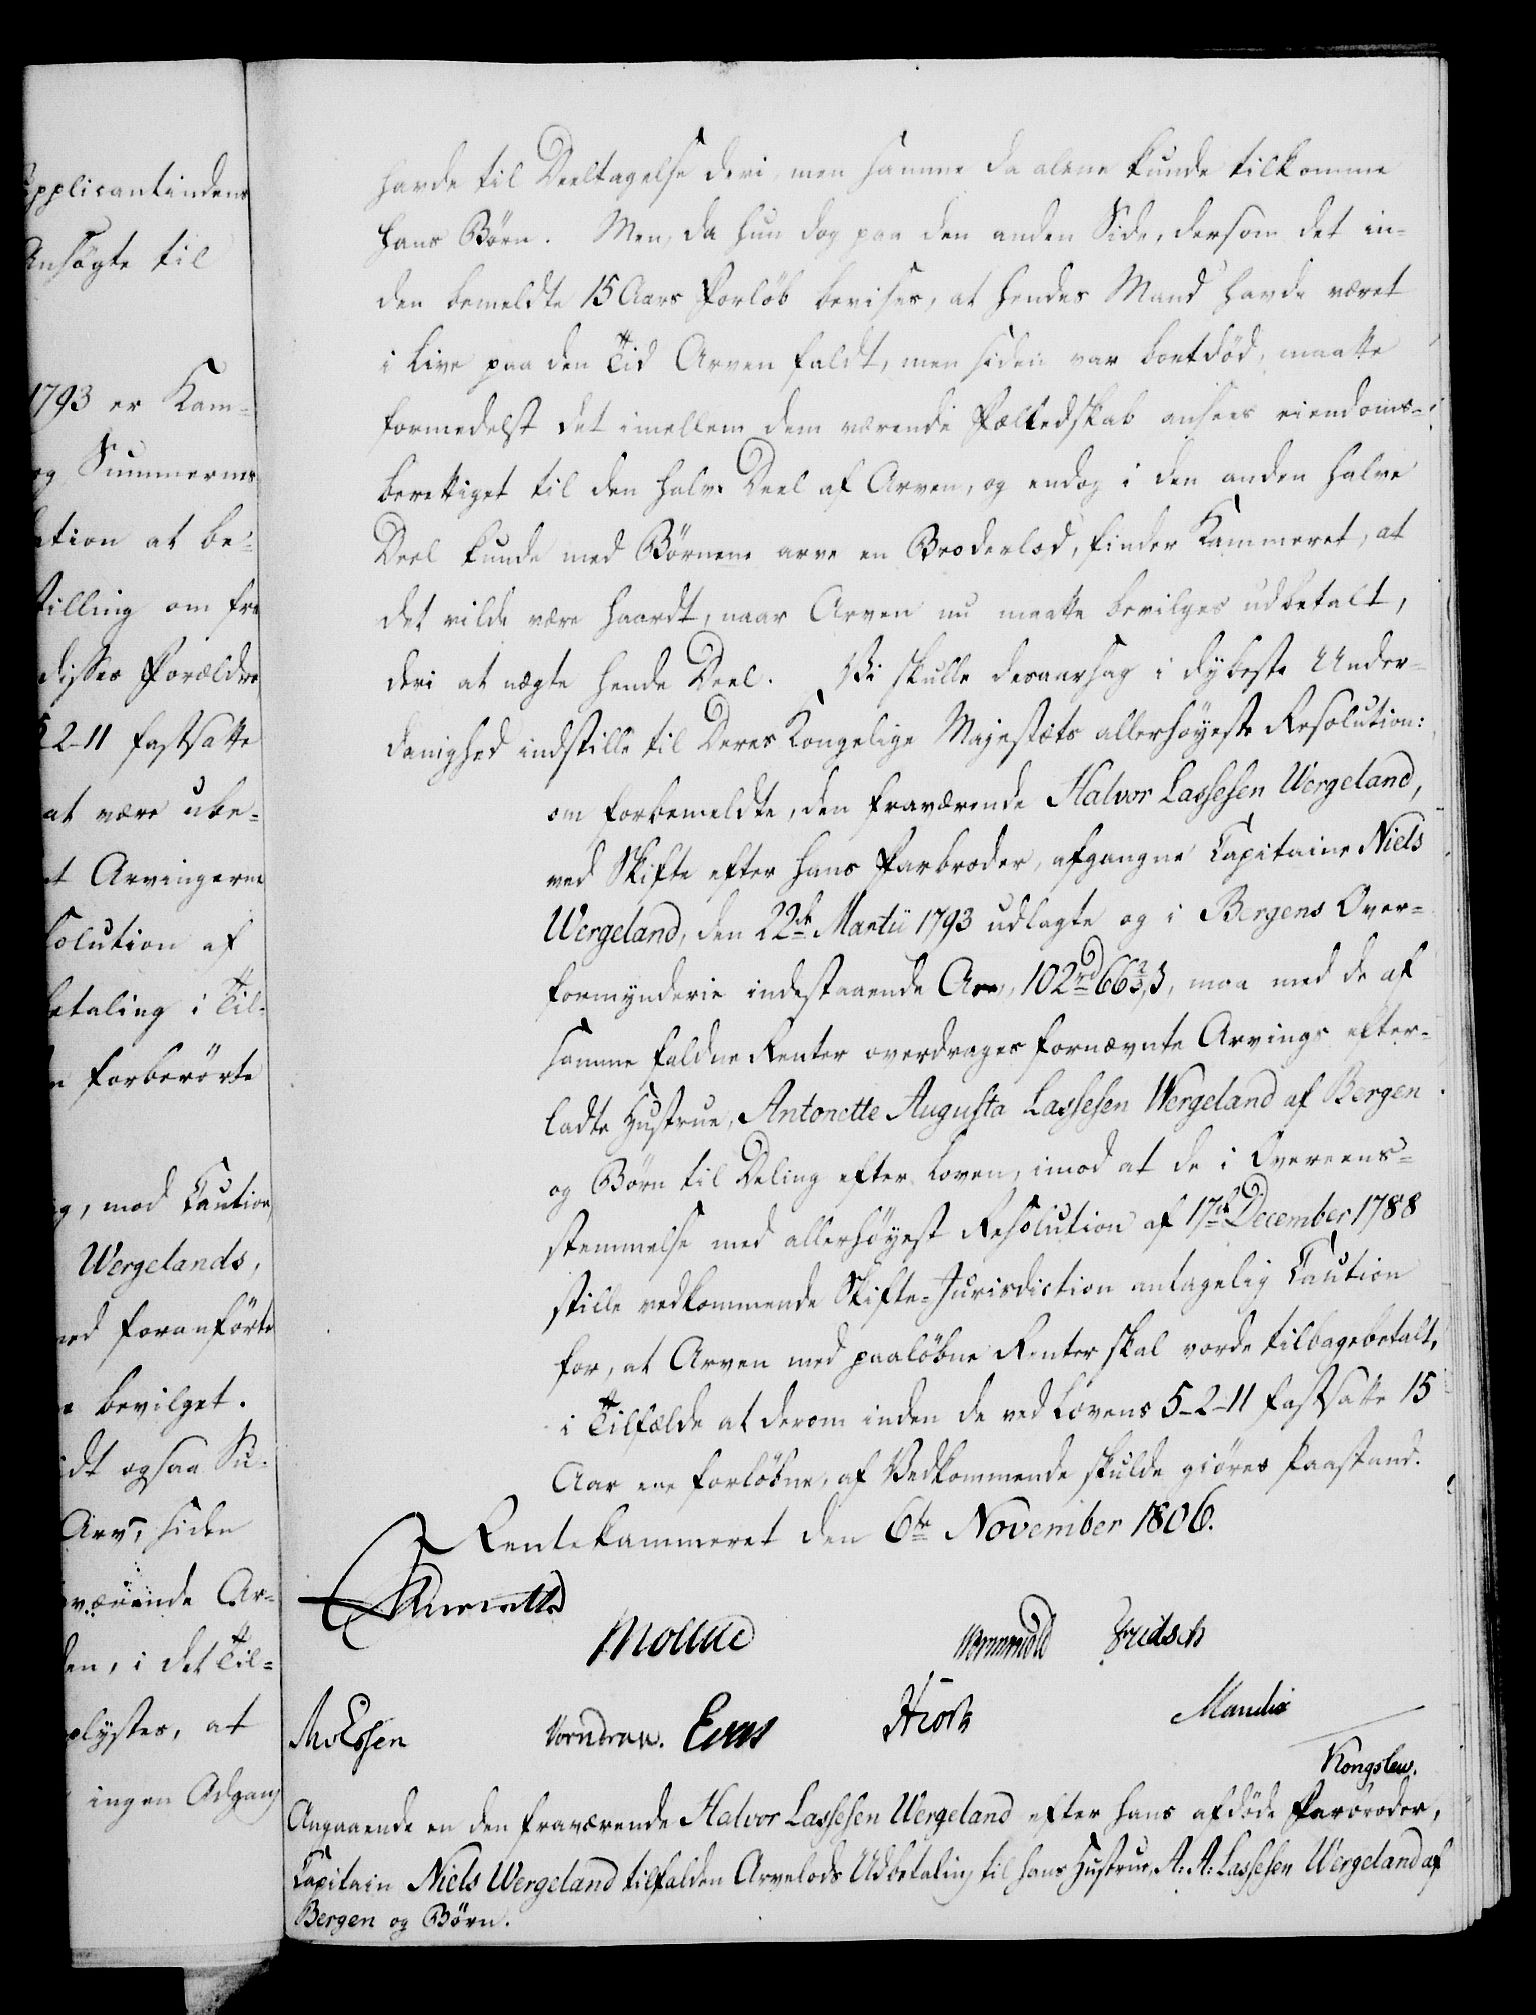 pplicantindens
Ansøgte til
1793 er Kam-
og Summernes
ation at be-
stilling om fra
disses Forældre
5-2-11 fastsatte
at være ube-
t Arvingerne
solution af
betaling i Til-
n forberørte
g, mod Caution,
Wergelands,
med foranførte
e bevilget.
idt ogsaa Su-
Arv, siden
værende Ar-
den, i det Til-
plystes, at
ingen Adgang
havde til Deeltagelse deri, men samme da alene kunde tilkomme
hans Børn. Men, da hun dog paa den anden Side, dersom det in-
den bemeldte 15 Aars Forløb bevises, at hendes Mand havde været
i Live paa den Tid Arven faldt, men siden var bortdød, maatte
formedelst det imellem dem værende Fælledskab ansees eiendoms-
berettiget til den halve Deel af Arven, og endog i den anden halve
Deel kunde med Børnene arve en Broderlod, finder Kammeret, at
det vilde være haardt, naar Arven nu maatte bevilges udbetalt,
deri at nægte hende Deel. Vi skulle desaarsag i dybeste Under-
danighed indstille til Deres Kongelige Majestæts allerhøyeste Resolution:
om forbemeldte, den fraværende Halvor Lassesen Wergeland,
ved Skifte efter hans Farbroder, afgangne Capitaine Niels
Wergeland, den 22de Martii 1793 udlagte og i Bergens Over-
formynderie indestaaende Arv, 102 rd 66 2/3 s, maa med de af
samme faldne Renter overdrages fornævnte Arvings efter-
ladte Hustrue, Antonette Augusta Lassesen Wergeland af Bergen
og Børn til Deling efter Loven, imod at de i Overeens-
stemmelse med allerhøyest Resolution af 17de December 1788
stille vedkommende Skifte-Jurisdiction antagelig Caution
for, at Arven med paaløbne Renter skal vorde tilbagebetalt,
i Tilfælde at derom inden de ved Lovens 5-2-11 fastsatte 15
Aar ere forløbne, af Vedkommende skulde giøres Paastand.
Rentekammeret den 6te November 1806.
Wormskiold Fridsch
Essen Vorndran. Hiorth Manthe
Kongslew.
Angaaende en den fraværende Halvor Lassesen Wergeland efter hans afdøde Farbroder,
Capitain Niels Wergeland tilfalden Arvelods Udbetaling til hans Hustrue, A: A: Lassesen Wergeland af
Bergen og Børn.